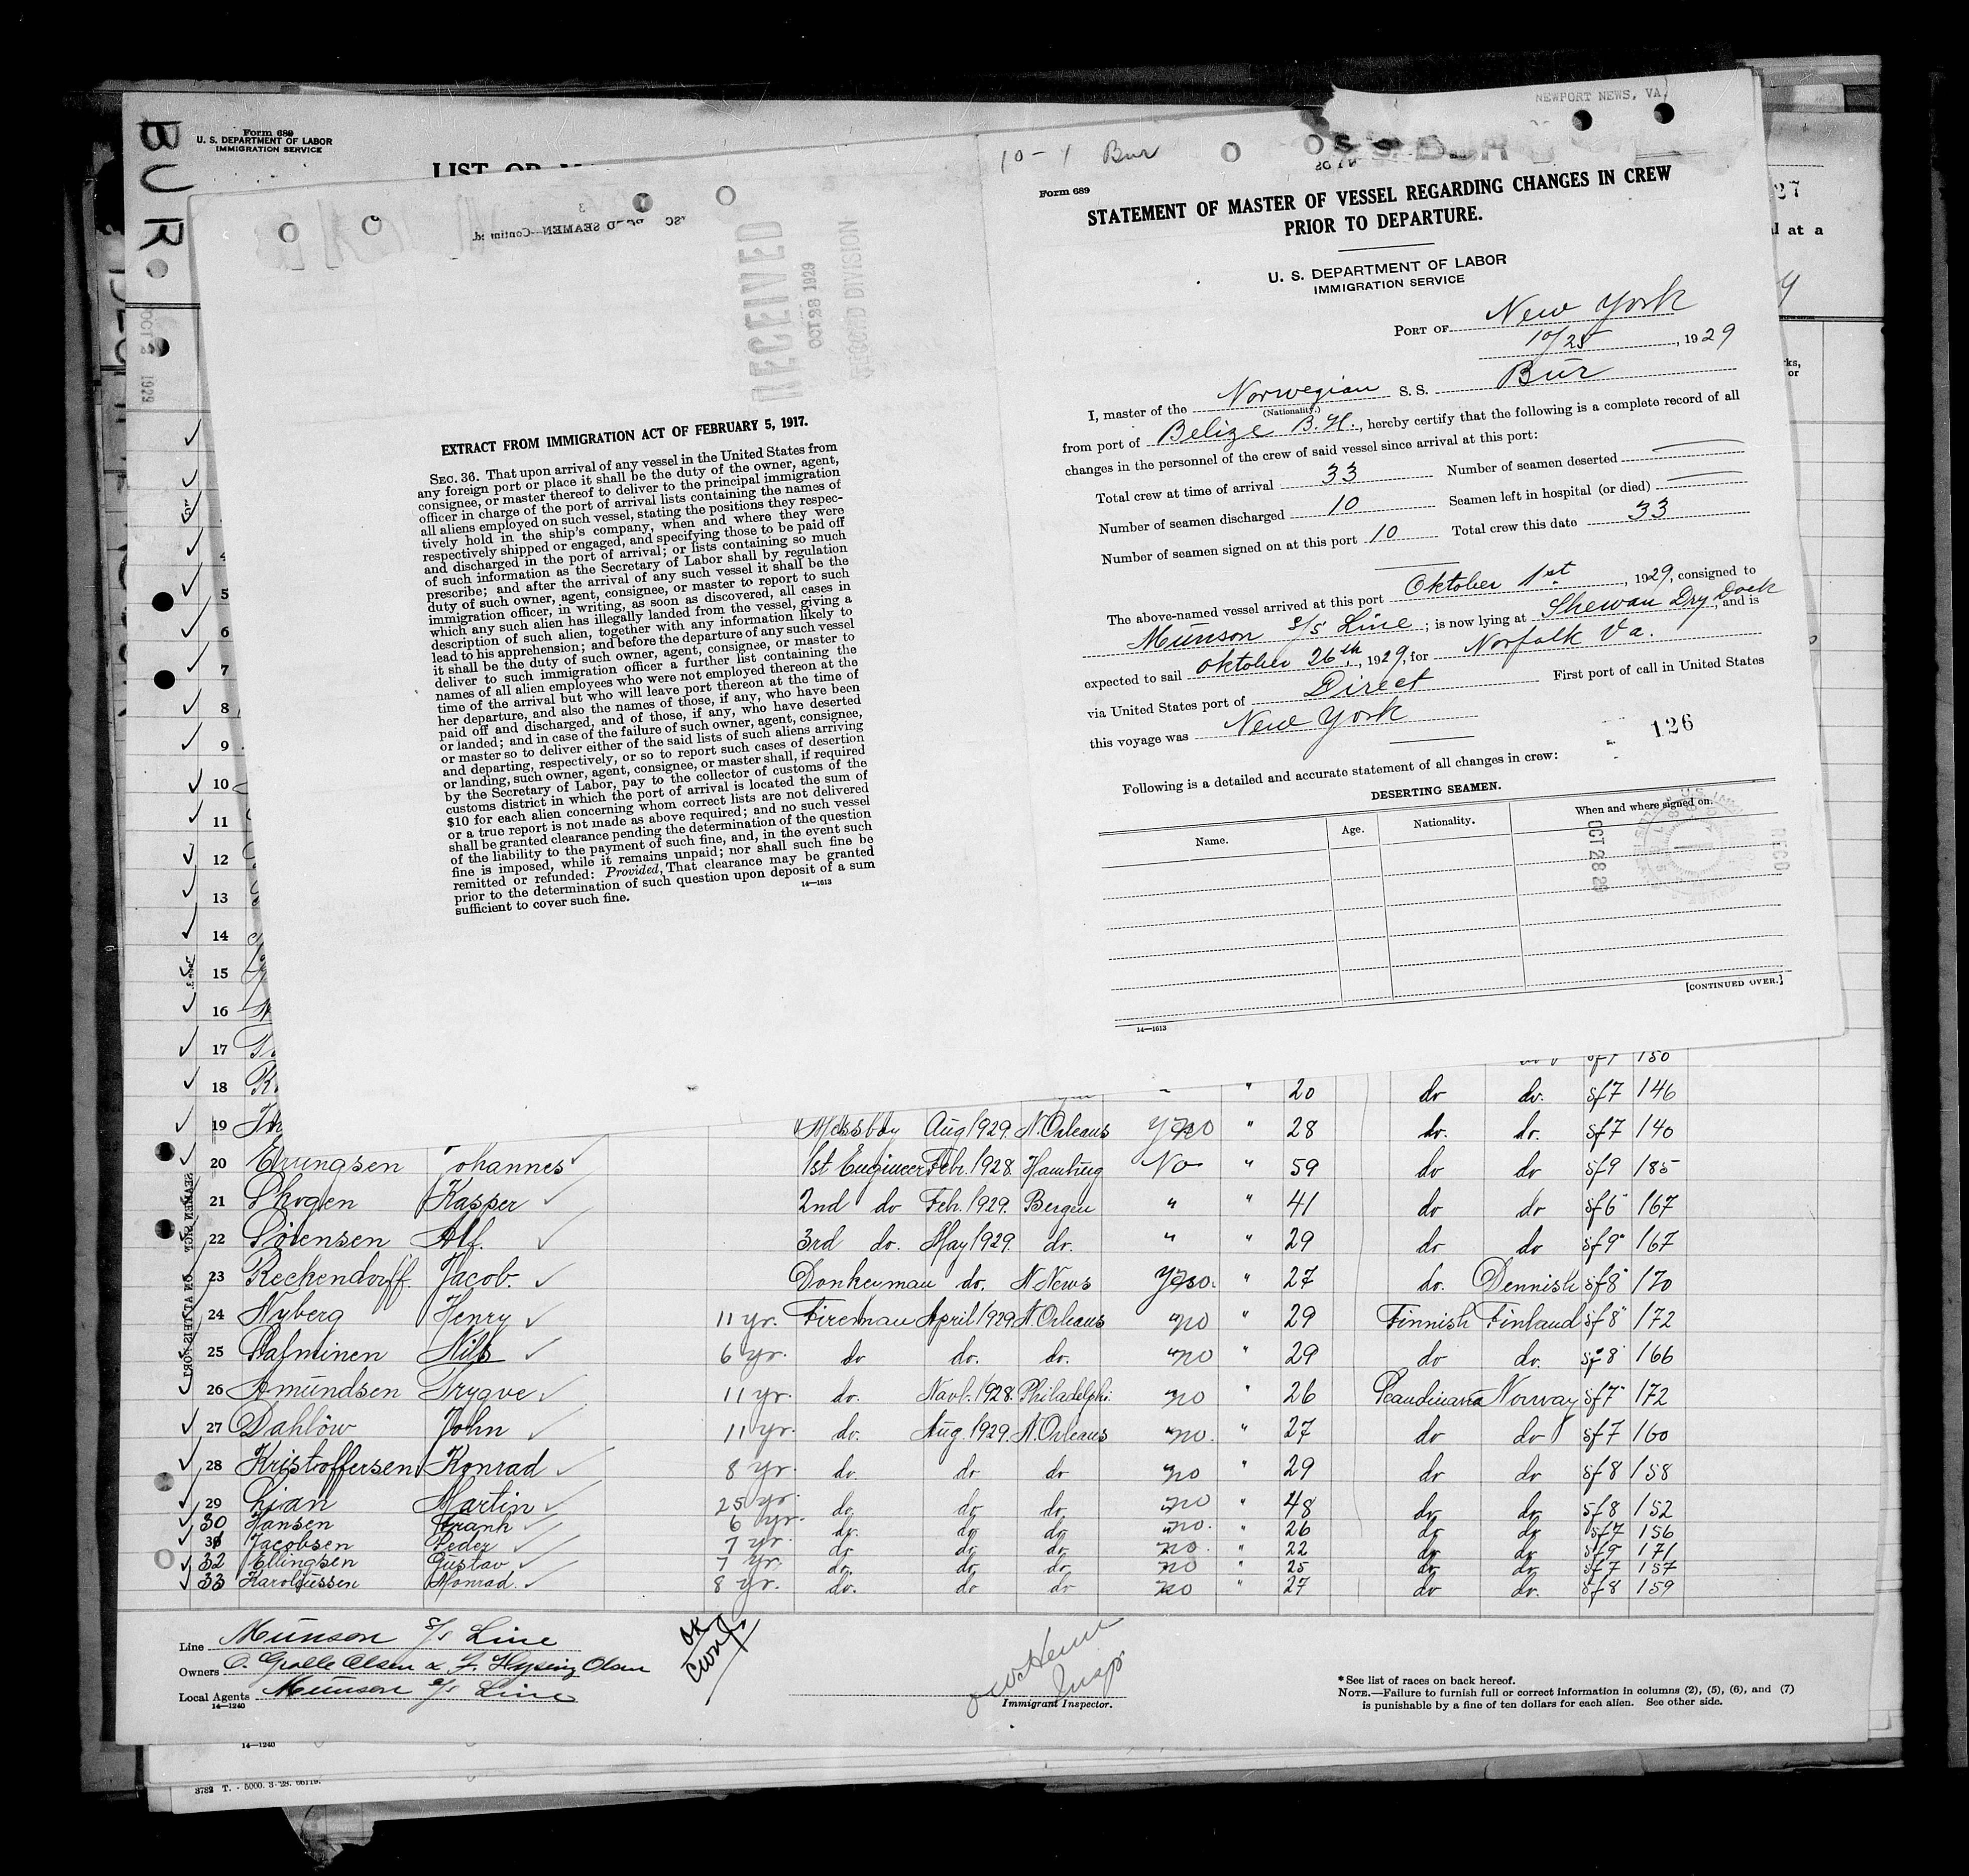 BUR
Form 689
U. S. DEPARTMENT OF LABOR
IMMIGRATION SERVICE
LIST OR
27
at a
OCT 1929
RECEIVED
OCT 28 1929
RECORD DIVISION
EXTRACT FROM IMMIGRATION ACT OF FEBRUARY 5, 1917.
SEC. 36. That upon arrival of any vessel in the United States from
any foreign port or place it shall be the duty of the owner, agent,
consignee, or master thereof to deliver to the principal immigration
officer in charge of the port of arrival lists containing the names of
all aliens employed on such vessel, stating the positions they respec-
tively hold in the ship's company, when and where they were
respectively shipped or engaged, and specifying those to be paid off
and discharged in the port of arrival; or lists containing so much
of such information as the Secretary of Labor shall by regulation
prescribe; and after the arrival of any such vessel it shall be the
duty of such owner, agent, consignee, or master to report to such
immigration officer, in writing, as soon as discovered, all cases in
which any such alien has illegally landed from the vessel, giving a
description of such alien, together with any information likely to
lead to his apprehension; and before the departure of any such vessel
it shall be the duty of such owner, agent, consignee, or master to
deliver to such immigration officer a further list containing the
names of all alien employees who were not employed thereon at the
time of the arrival but who will leave port thereon at the time of
her departure, and also the names of those, if any, who have been
paid off and discharged, and of those, if any, who have deserted
or landed; and in case of the failure of such owner, agent, consignee,
or master so to deliver either of the said lists of such aliens arriving
and departing, respectively, or so to report such cases of desertion
or landing, such owner, agent, consignee, or master shall, if required
by the Secretary of Labor, pay to the collector of customs of the
customs district in which the port of arrival is located the sum of
$10 for each alien concerning whom correct lists are not delivered
or a true report is not made as above required; and no such vessel
shall be granted clearance pending the determination of the question
of the liability to the payment of such fine, and, in the event such
fine is imposed, while it remains unpaid; nor shall such fine be
remitted or refunded: Provided, That clearance may be granted
prior to the determination of such question upon deposit of a sum
sufficient to cover such fine.
14—1613
NEWPORT NEWS, VA.
10-1 Bur
Form 689
STATEMENT OF MASTER OF VESSEL REGARDING CHANGES IN CREW
PRIOR TO DEPARTURE.
U. S. DEPARTMENT OF LABOR
IMMIGRATION SERVICE
PORT OF New York
10/25, 1929
I, master of the Norwegian S. S. Bur
(Nationality.)
from port of Belize B.H., hereby certify that the following is a complete record of all
changes in the personnel of the crew of said vessel since arrival at this port:
Total crew at time of arrival 33 Number of seamen deserted —
Number of seamen discharged 10 Seamen left in hospital (or died) —
Number of seamen signed on at this port 10 Total crew this date 33
The above-named vessel arrived at this port Oktober 1st, 1929, consigned to
Munson S/S Line; is now lying at Shewan Dry Dock, and is
expected to sail Oktober 26th, 1929, for Norfolk Va.
via United States port of Direct First port of call in United States
this voyage was New York
126
Following is a detailed and accurate statement of all changes in crew:
DESERTING SEAMEN.
Name. Age. Nationality. When and where signed on.
OCT 28 29
RECD
[CONTINUED OVER.]
14—1613
4
5
6
7
8
9
10
11
12
13
14
15
16
17 150
18 " 20 do do. sf7 146
19 Messboy Aug 1929. N.Orleans no " 28 do. do. sf7 140
20 Johannes 1st Engineer Febr. 1928. Hamburg No " 59 do do sf9 185
21 Skogen Kasper 2nd do Feb. 1929. Bergen " " 41 do do sf6 167
22 Sørensen Alf. 3rd do. May 1929. do. " " 29 do do sf9 167
23 Reckendorff Jacob. Donkeyman do. N.News " 27 do. Dennish sf8 170
24 Nyberg Henry 11 yr. Fireman April 1929 N.Orleans no " 29 Finnish Finland sf8 172
25 Salminen Nils 6 yr. do do. do. no " 29 do do. sf8 166
26 Amundsen Trygve 11 yr. do. Novb. 1928. Philadelphi. no " 26 Scandinavia Norway sf7 172
27 Dahlöw John 11 yr. do. Aug. 1929. N.Orleans no. " 27 do do sf7 160
28 Kristoffersen Konrad 8 yr. do. do do no " 29 do do sf8 158
29 Lian Martin 25 yr. do. do. do. no " 48 do. do. sf8 152
30 Hansen Frank 6 yr. do. do. do. no. " 26 do do sf7 156
31 Jacobsen Peder 7 yr. do do. do. no. " 22 do do. sf9 171
32 Ellingsen Gustav 7 yr. do. do. do. no " 25 do do sf7 157
33 Karoliussen Monrad. 8 yr. do. do do no " 27 do do. sf8 159
Line Munson S/S Line
Owners O. Grolle Olsen & F. Hysing Olsen
Local Agents Munson S/S Line
14—1240
OK
Immigrant Inspector.
* See list of races on back hereof.
NOTE.—Failure to furnish full or correct information in columns (2), (5), (6), and (7)
is punishable by a fine of ten dollars for each alien. See other side.
14—1240
3782 T. - 5000. 3-28. 66119.